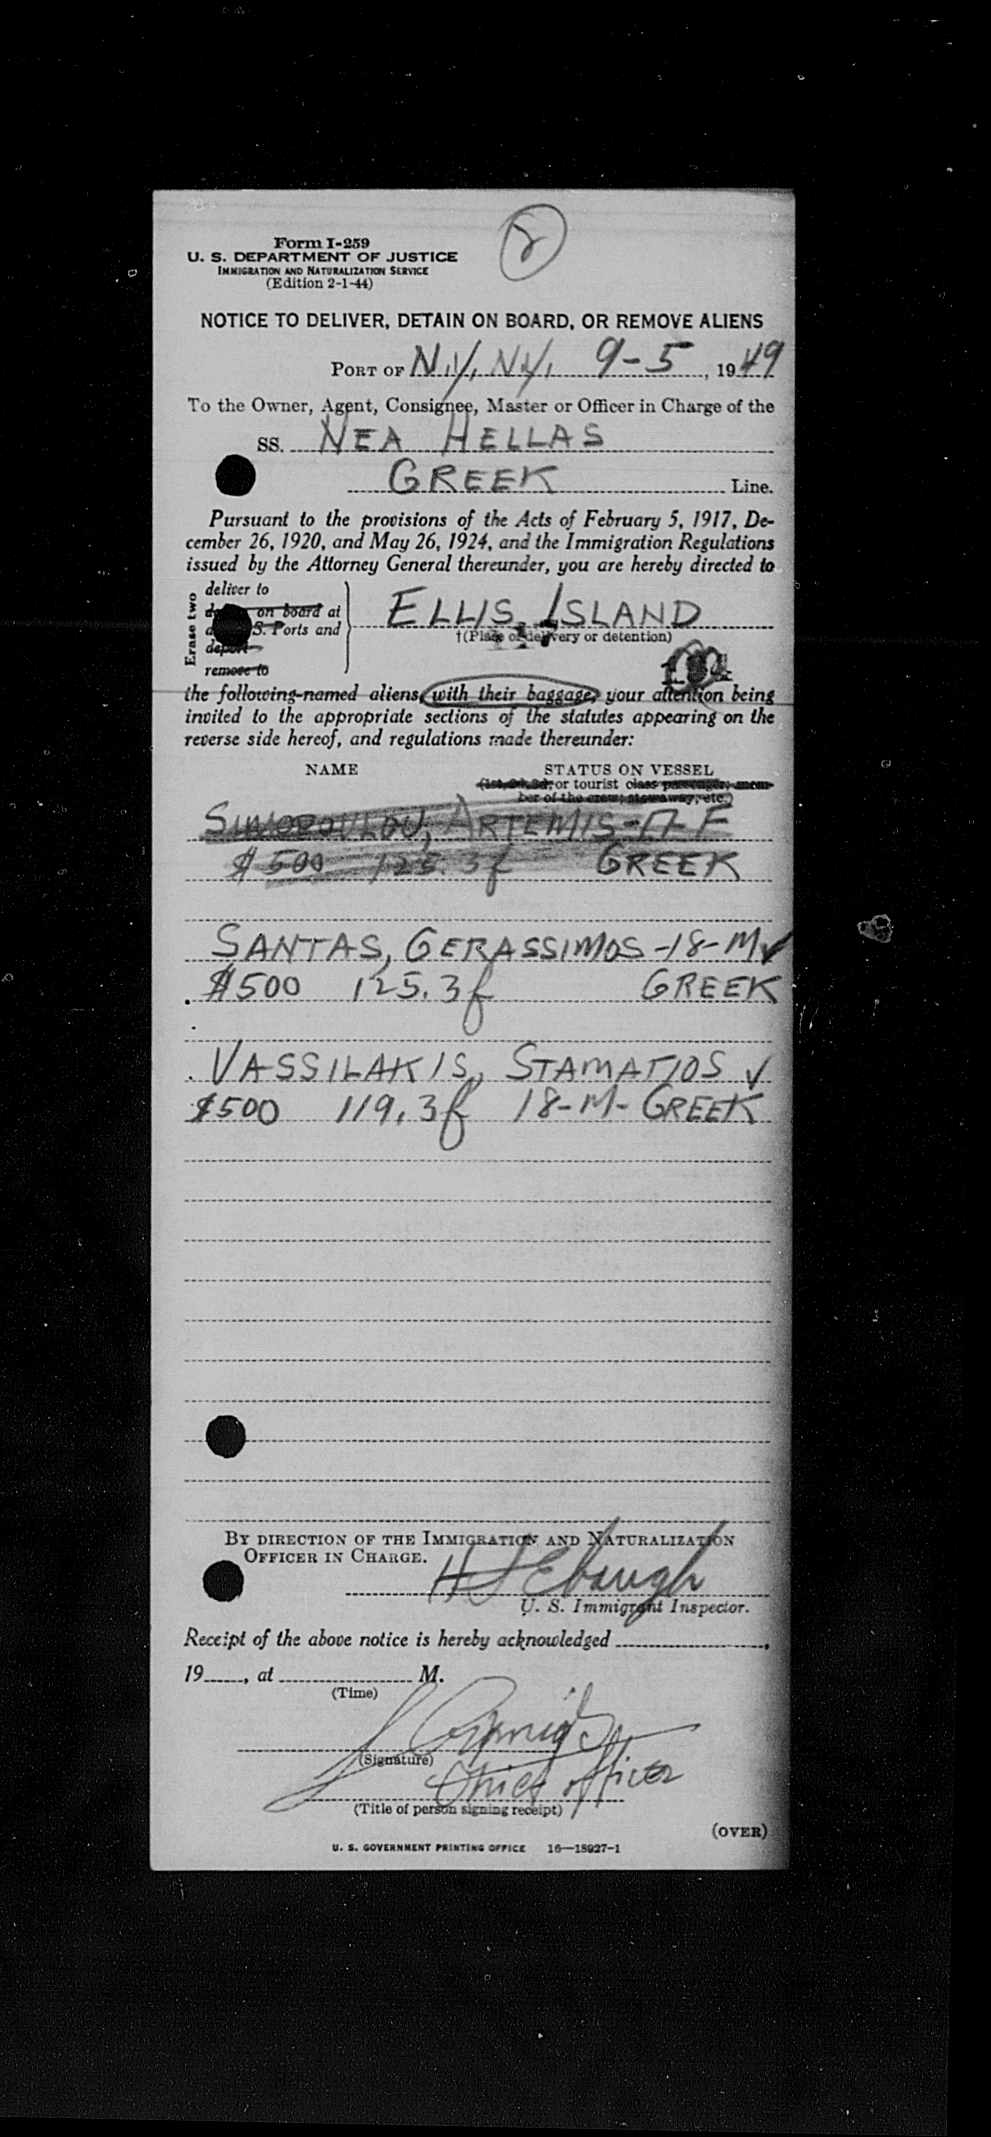 8
Form I-259
U. S. DEPARTMENT OF JUSTICE
IMMIGRATION AND NATURALIZATION SERVICE
(Edition 2-1-44)
NOTICE TO DELIVER, DETAIN ON BOARD, OR REMOVE ALIENS
PORT OF N.Y. N.Y. 9-5, 1949
To the Owner, Agent, Consignee, Master or Officer in Charge of the
SS. NEA HELLAS
GREEK Line.
Pursuant to the provisions of the Acts of February 5, 1917, De-
cember 26, 1920, and May 26, 1924, and the Immigration Regulations
issued by the Attorney General thereunder, you are hereby directed to
Erase two
deliver to
on board at
S. Ports and
deport
remove to
ELLIS ISLAND
†(Place of delivery or detention)
the following-named aliens, with their baggage, your attention being
invited to the appropriate sections of the statutes appearing on the
reverse side hereof, and regulations made thereunder:
NAME STATUS ON VESSEL
(1st, 2d, 3d, or tourist class passenger, mem-
ber of the crew, stowaway, etc.)
SIMOPOULOU, ARTEMIS F
$500 125.3f GREEK
SANTAS, GERASSIMOS-18-M ✓
$500 125.3f GREEK
VASSILAKIS, STAMATIOS ✓
$500 119.3f 18-M-GREEK
BY DIRECTION OF THE IMMIGRATION AND NATURALIZATION
OFFICER IN CHARGE.
H J Ebaugh
U. S. Immigrant Inspector.
Receipt of the above notice is hereby acknowledged
19, at M.
(Time)
(Signature)
Chief officer
(Title of person signing receipt)
(OVER)
U. S. GOVERNMENT PRINTING OFFICE 16—18927-1